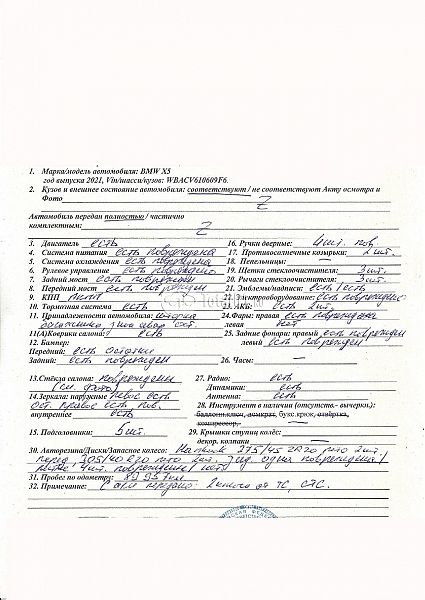 1. Марка/модель автомобиля: BMW X5
год выпуска 2021, Vin/шасси/кузов: WBACV610609F6.
2. Кузов и внешнее состояние автомобиля: соответствуют / не соответствуют Акту осмотра и
Фото Z
Автомобиль передан полностью / частично
комплектным: Z
3. Двигатель есть
4. Система питания есть повреждена
5. Система охлаждения есть повреждена
6. Рулевое управление есть повреждено
7. Задний мост есть поврежден
8. Передний мост есть поврежден
9. КПП
10. Тормозная система есть
11. Принадлежности автомобиля: шторка
11(А)Коврики салона: есть
12. Бампер:
Передний: есть остатки
Задний: есть поврежден
13.Стёкла салона: повреждены
(см. фото)
14.Зеркала: наружные левое есть
ост. правое есть пов.
внутреннее есть
15. Подголовники: 5 шт.
16. Ручки дверные: 4 шт. пов.
17. Противосолнечные козырьки: 2 шт.
18. Пепельницы: —
19. Щетки стеклоочистителя: 3 шт.
20. Рычаги стеклоочистителя: 3 шт.
21. Эмблемы/надписи: есть / есть
22. Электрооборудование: есть повреждено
23. : есть 2 шт.
24.Фары: правая есть повреждена
левая нет
25. Задние фонари: правый есть поврежден
левый есть поврежден
26. Часы: —
27. Радио: есть
Динамики: есть
Антенна: есть
28. Инструмент в наличии (отсутств.- вычеркн.):
баллон.ключ, домкрат, букс.крюк, отвёртка,
компрессор,
29. Крышки ступиц колёс:
декор. колпаки —
30. Авторезина/Диски/Запасное колесо: 275/45 R20 2 шт.
перед, 305/40 R20 2 шт. зад. одна повреждена/
литые 4 шт. повреждены/
31. Пробег по одометру:
32. Примечание: передано: 2 ключа от ТС, СТС.